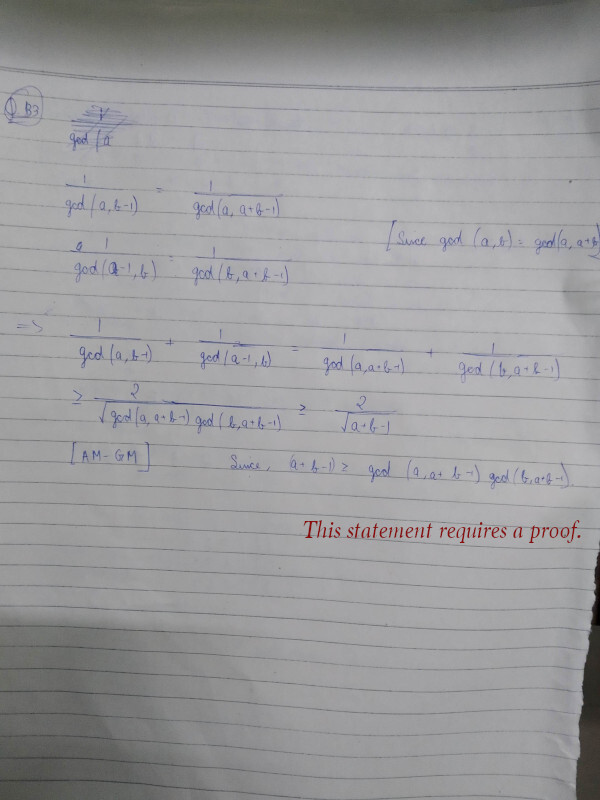 Q B3
gcd (a
1/gcd(a, b-1) = 1/gcd(a, a+b-1)
[Since gcd (a,b) = gcd(a, a+b)
1/gcd(a-1, b) = 1/gcd(b, a+b-1)
=> 1/gcd(a, b-1) + 1/gcd(a-1, b) = 1/gcd(a, a+b-1) + 1/gcd(b, a+b-1)
≥ 2/√(gcd(a, a+b-1) gcd(b, a+b-1)) ≥ 2/√(a+b-1)
[AM-GM] Since, (a+b-1) ≥ gcd (a, a+b-1) gcd(b, a+b-1).
This statement requires a proof.